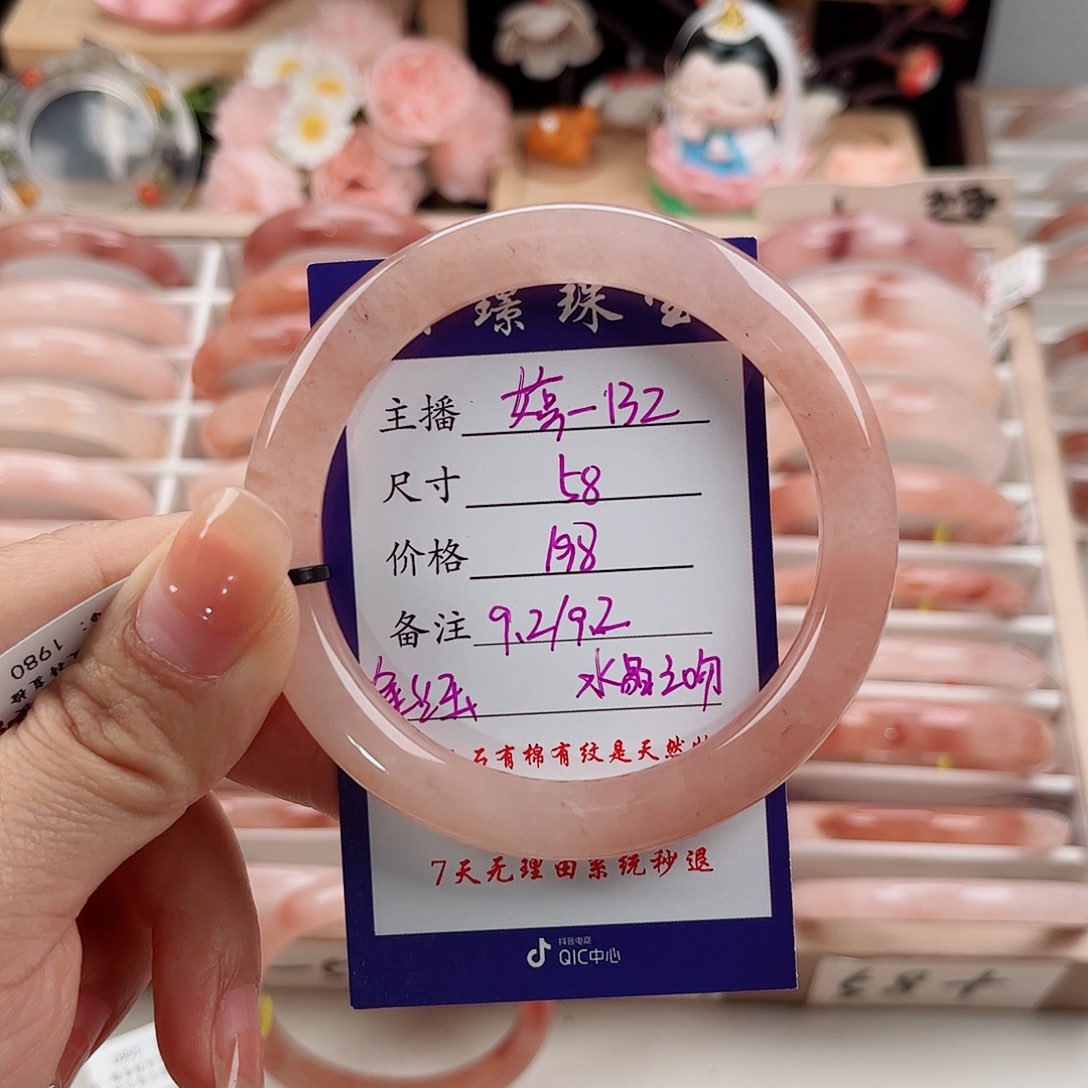 璟珠宝
主播 婷-132
尺寸 58
价格 198
备注 9.2/9.2
金丝玉 水晶之吻
石有棉有纹是天然
7天无理由系统秒退
抖音电商
QIC中心
1980